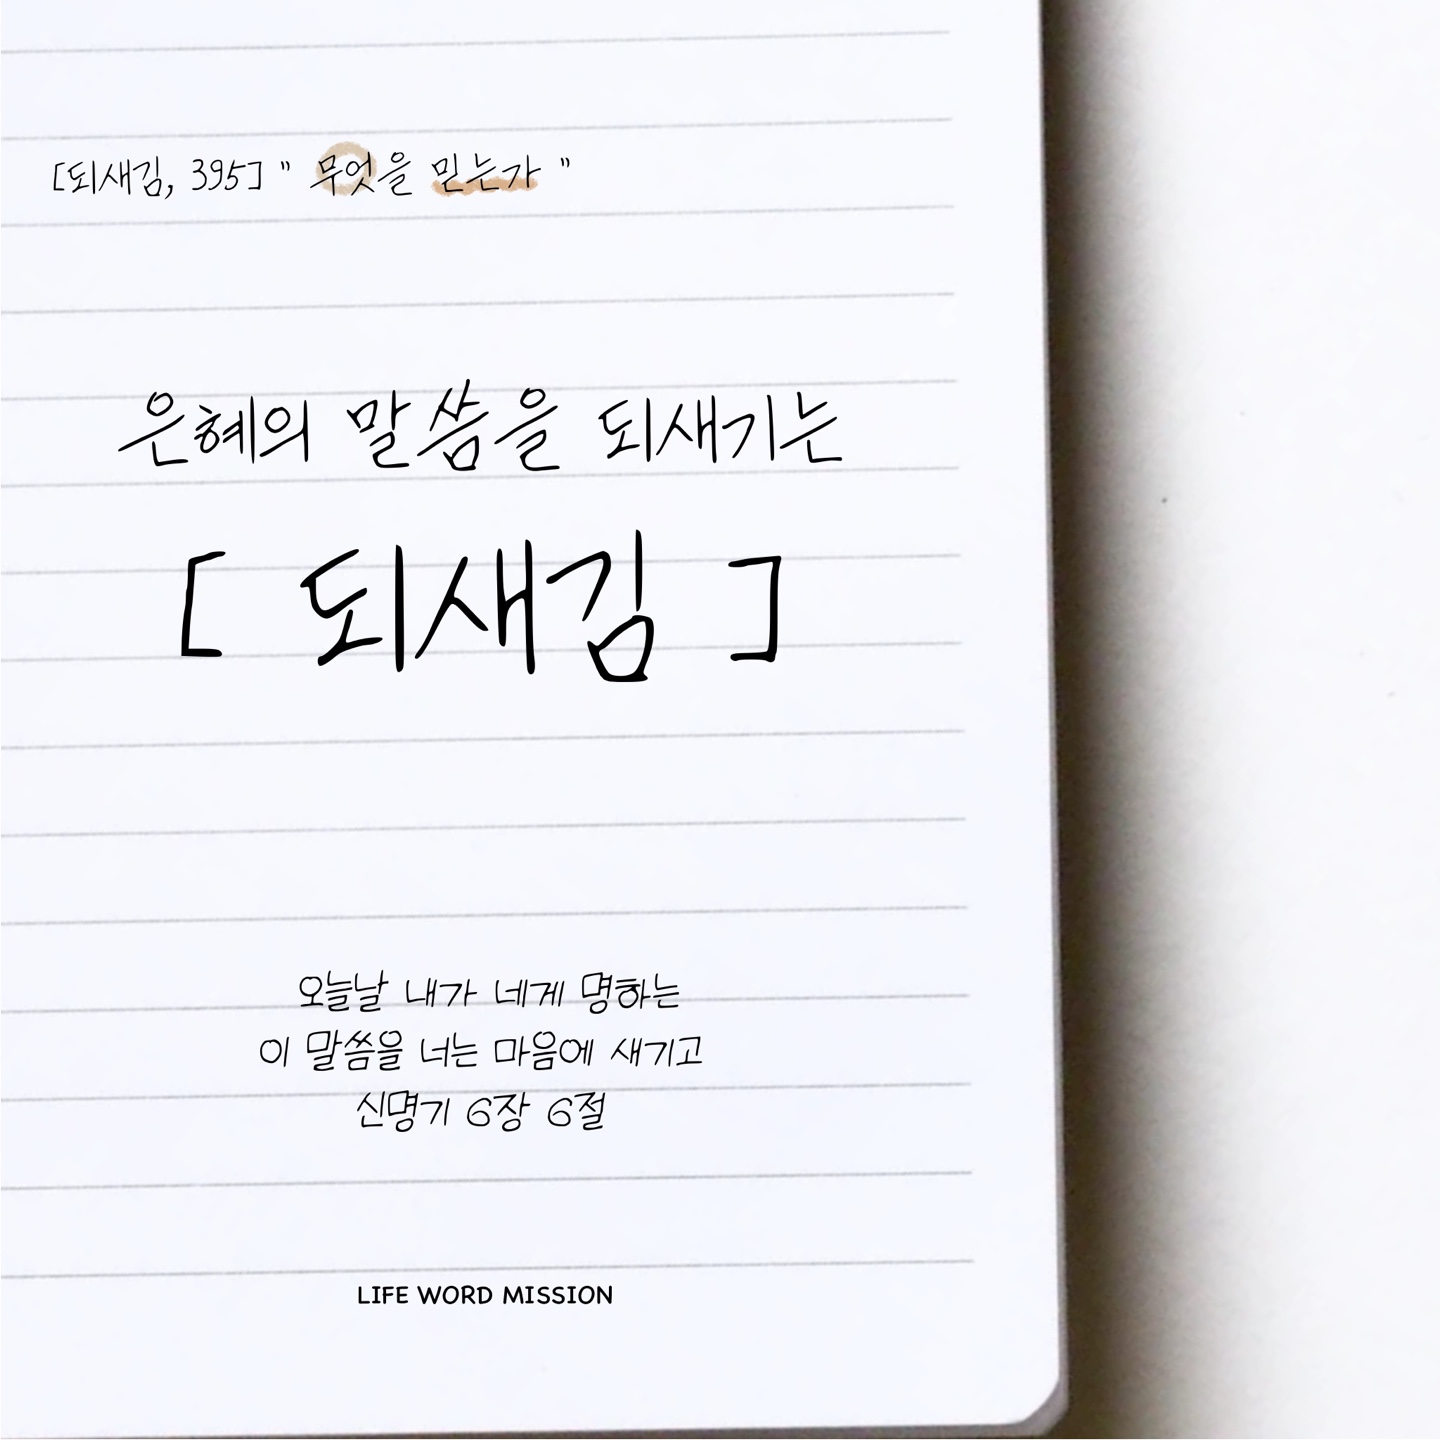 [되새김, 395] " 무엇을 믿는가 "
은혜의 말씀을 되새기는
[ 되새김 ]
오늘날 내가 네게 명하는
이 말씀을 너는 마음에 새기고
신명기 6장 6절
LIFE WORD MISSION